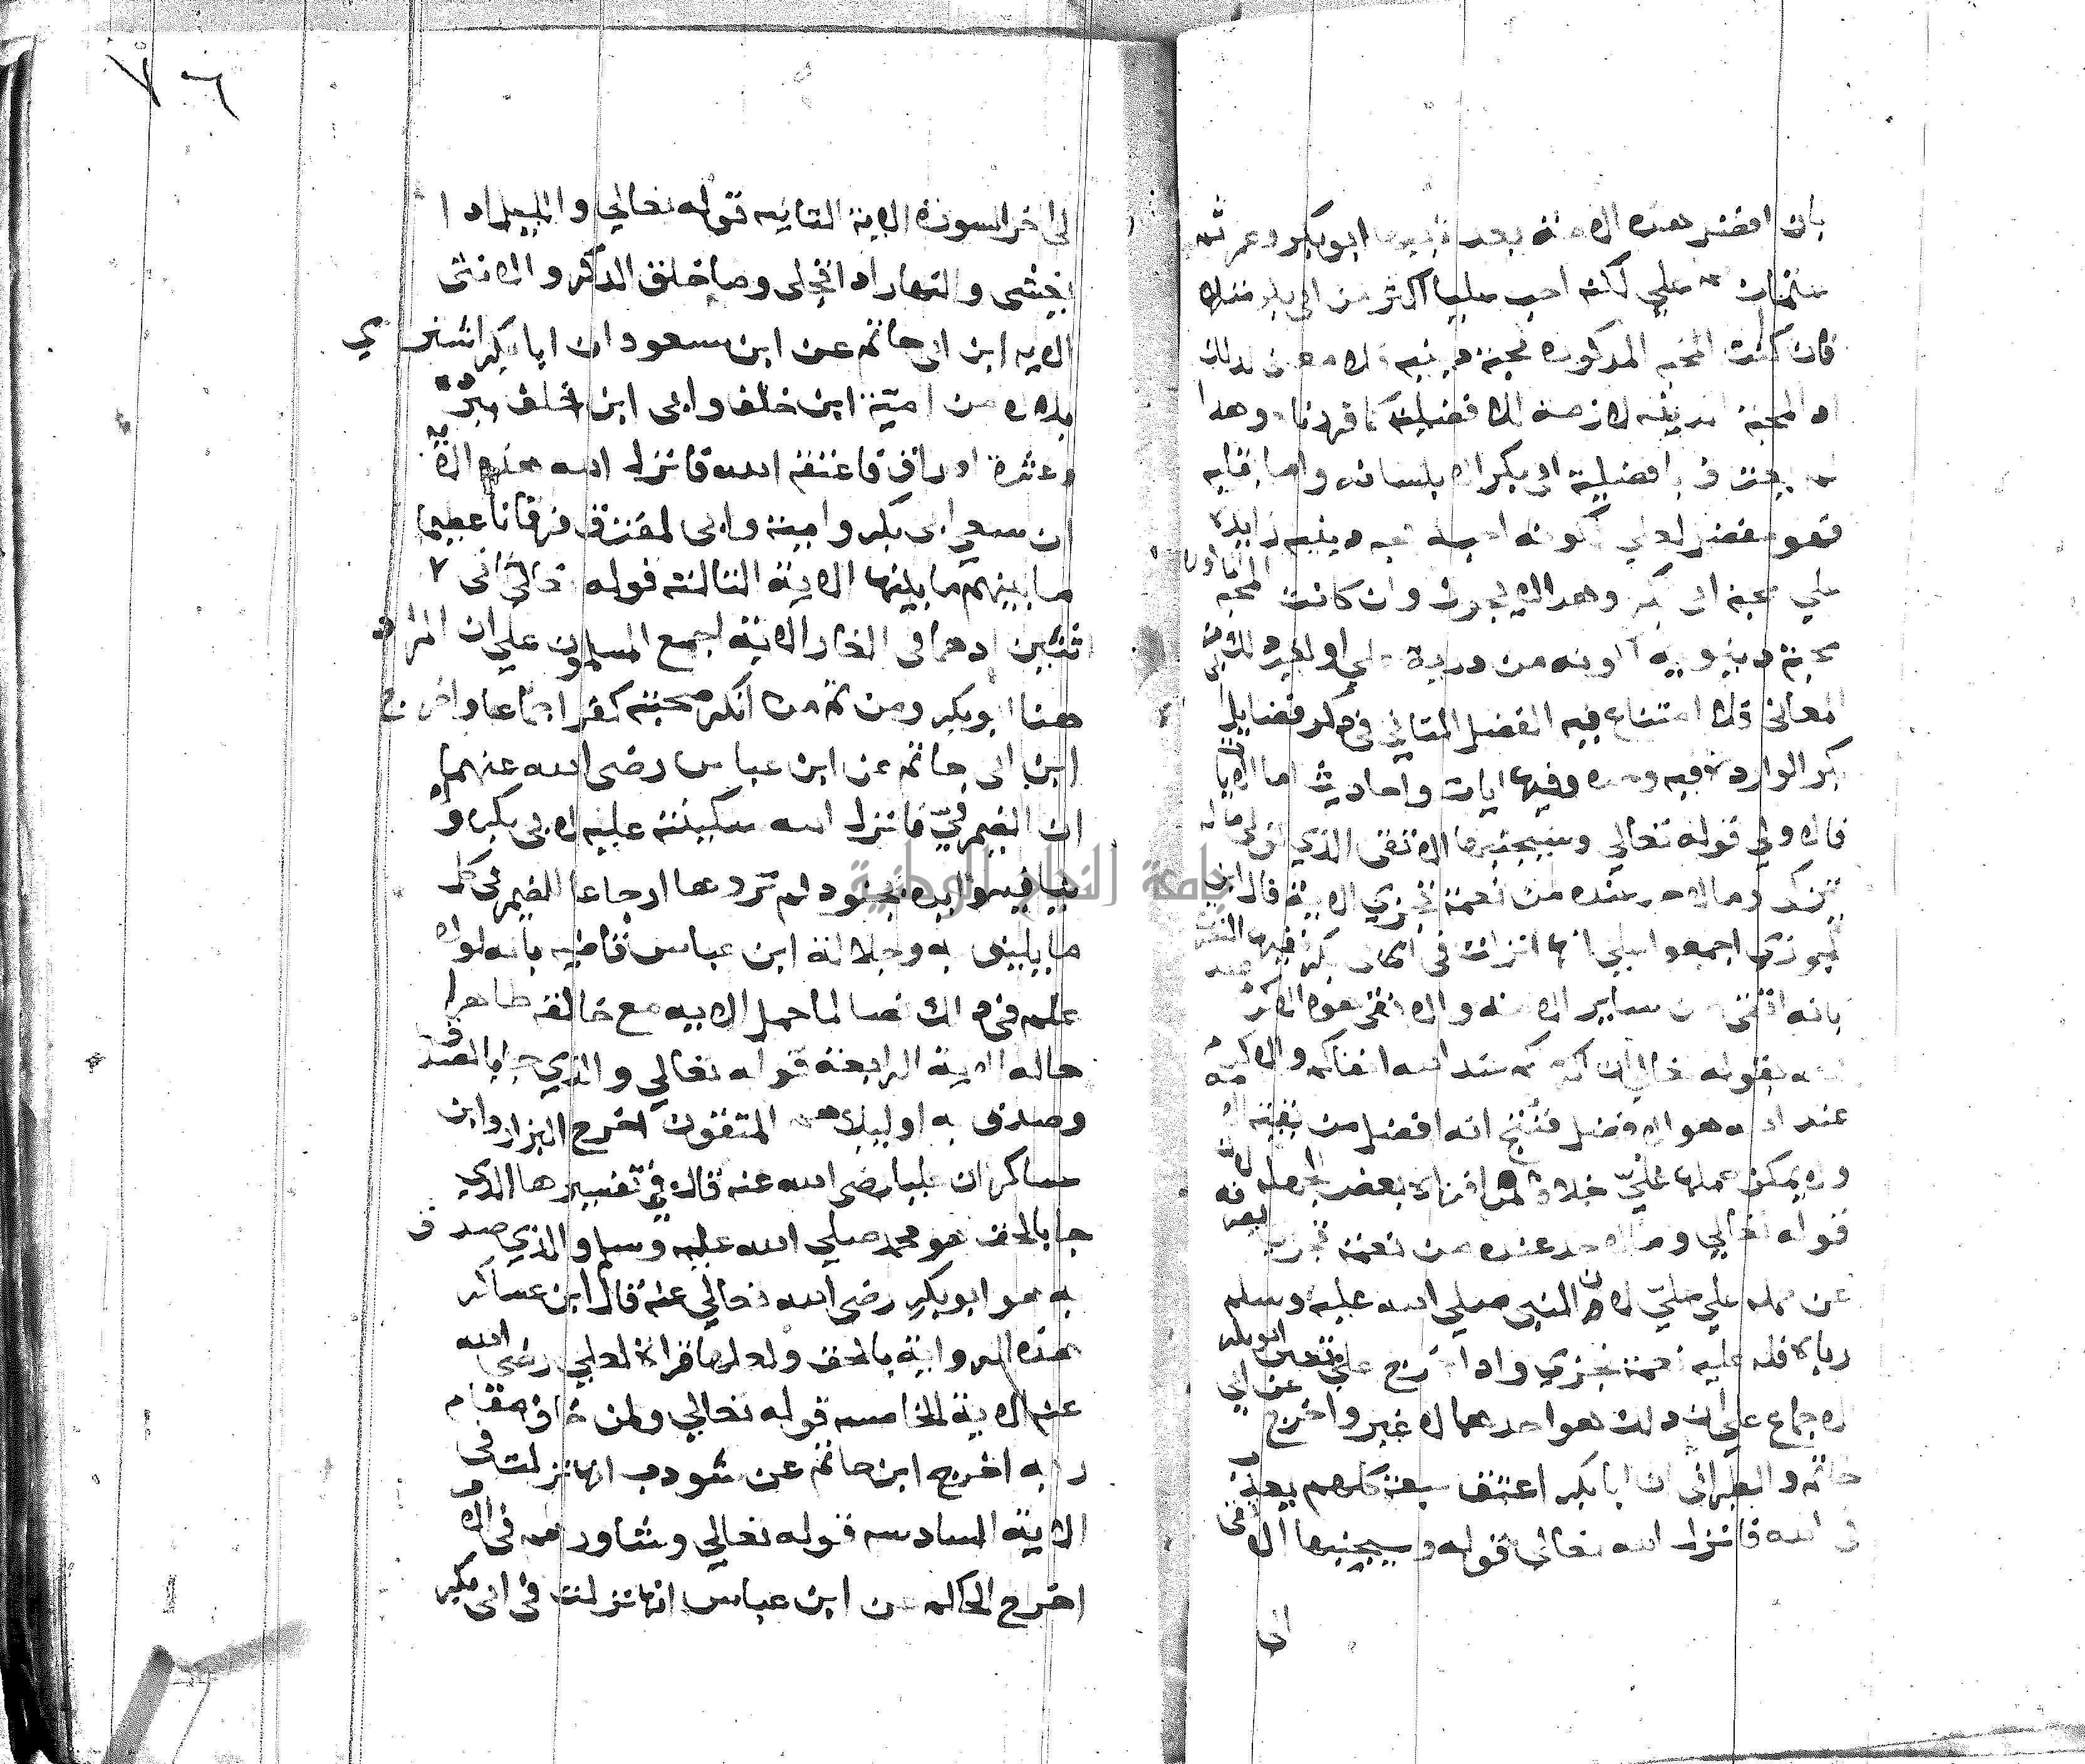 بان افضل هذه الامة بعد نبيها ابو بكر وعمر ثم
عثمان علي لكنه احب عليا اكثر من ابي بكر مثلا
فان كانت المحبه المذكوره محبة دينيه فلا معنى لذلك
اذ المحبة الدينيه لازمة للافضلية كما قررنا وهذا
لم يعترف بافضلية ابي بكر الا بلسانه واما بقلبه
فهو مفضل لعلي لكونه احبه محبه دينيه زايدة
علي محبة ابي بكر وهذا لا يجوز وان كانت المحبه
محبة دنيويه لكونه من ذرية علي او لغير ذلك من
المعاني فلا امتناع فيه الفصل الثاني في ذكر فضايل ابي
بكر الواردة فيه وحده وفيها ايات واحاديث اما الايات
فالاولي قوله تعالي وسيجنبها الاتقى الذي يؤتي ماله
يتزكى وما لاحد عنده من نعمة تجزي الاية قال ابن
الجوزي اجمعوا علي انها انزلت في ابي بكر ففيها التصريح
بانه اتقى من ساير الامة والاتقى هو الاكرم عند
الله بقوله تعالي ان اكرمكم عند الله اتقاكم والاكرم
عند الله هو الافضل فنتج انه افضل من بقية الامة
ولا يمكن حملها علي علي خلافا لما افتراه بعض الجهلة لان
قوله تعالي وما لاحد عنده من نعمة تجزي يصرفه
عن حمله علي علي لان النبي صلي الله عليه وسلم
رباه فله عليه نعمة تجزي واذا خرج علي تعين ابو بكر
للاجماع علي ان ذلك هو احدهما لا غير واخرج ابن ابي
حاتم والطبراني ان ابا بكر اعتق سبعة كلهم يعذب
في الله فانزل الله تعالي قوله وسيجنبها الاتقى
الى
٧٦
الى اخر السورة الاية الثانيه قوله تعالي والليل اذا
يغشى والنهار اذا تجلى وما خلق الذكر والانثى
الايه ابن ابي حاتم عن ابن مسعود ان ابا بكر اشترى
بلالا من امية ابن خلف وابي ابن خلف ببردة
وعشرة اواق فاعتقه لله فانزل الله هذه الاية
ان سعي ابي بكر وامية وابي لمفترق فرقانا عظيما
ما بينهم ما بينها الاية الثالثة قوله تعالي ثاني
اثنين اذ هما في الغار الاية اجمع المسلمون علي ان المراد
هنا ابو بكر ومن ثم من انكر صحبته كفر اجماعا واخرج
ابن ابي حاتم عن ابن عباس رضي الله عنهما
ان الضمير في فانزل الله سكينته عليه لابي بكر ولا
ينافيه وايده بجنود لم تروها ارجاعا للضمير في كل
ما يليق به وجلالة ابن عباس قاضيه بانه لولا
علمه في ذلك نصا لما حمل الايه مع خالفة ظاهرا
حاله الاية الرابعة قوله تعالي والذي جا بالصدق
وصدق به اوليك هم المتقون اخرج البزار وابن
عساكر ان عليا رضي الله عنه قال في تفسيرها الذي
جا بالحق هو محمد صلي الله عليه وسلم والذي صدق
به هو ابو بكر رضي الله تعالي عنه قال ابن عساكر
هذه الرواية بالحق ولعلها قراة لعلي رضي الله
عنه الاية الخامسه قوله تعالي ولمن خاف مقام
ربه اخرج ابن حاتم عن شوذب انها نزلت في
الاية السادسه قوله تعالي وشاورهم في الامر
اخرج الحاكم عن ابن عباس انها نزلت في ابي بكر
جامعة النجاح الوطنية